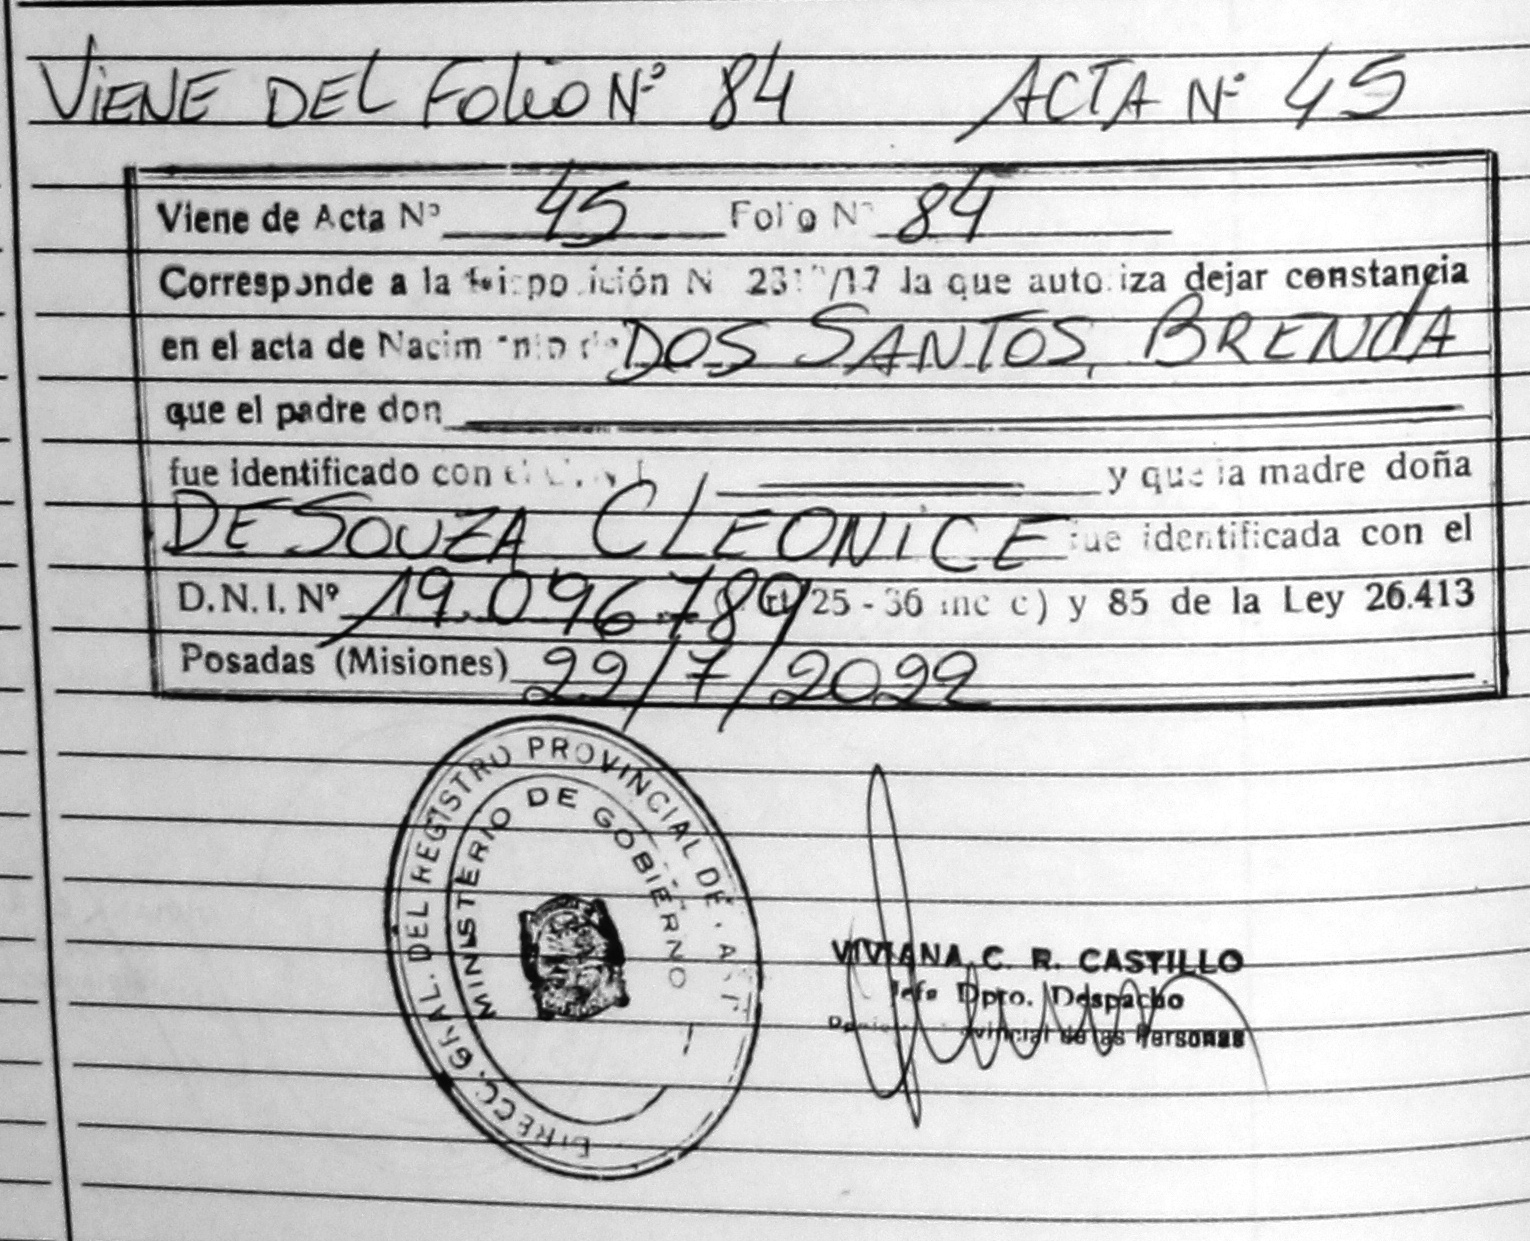 VIENE DEL FOLIO Nº 84 ACTA Nº 45
Viene de Acta Nº 45 Folio Nº 84
Corresponde a la /17 la que autoriza dejar constancia
en el acta de Nacimiento de DOS SANTOS, BRENDA
que el padre don
fue identificado con y que la madre doña
DE SOUZA CLEONICE fue identificada con el
D.N.I. Nº 19.096.789 25 - 36 inc c) y 85 de la Ley 26.413
Posadas (Misiones) 22/7/2022
DIRECC. GRAL. DEL REGISTRO PROVINCIAL DE
MINISTERIO DE GOBIERNO
VIVIANA C. R. CASTILLO
Jefe Dpto. Despacho
de las Personas